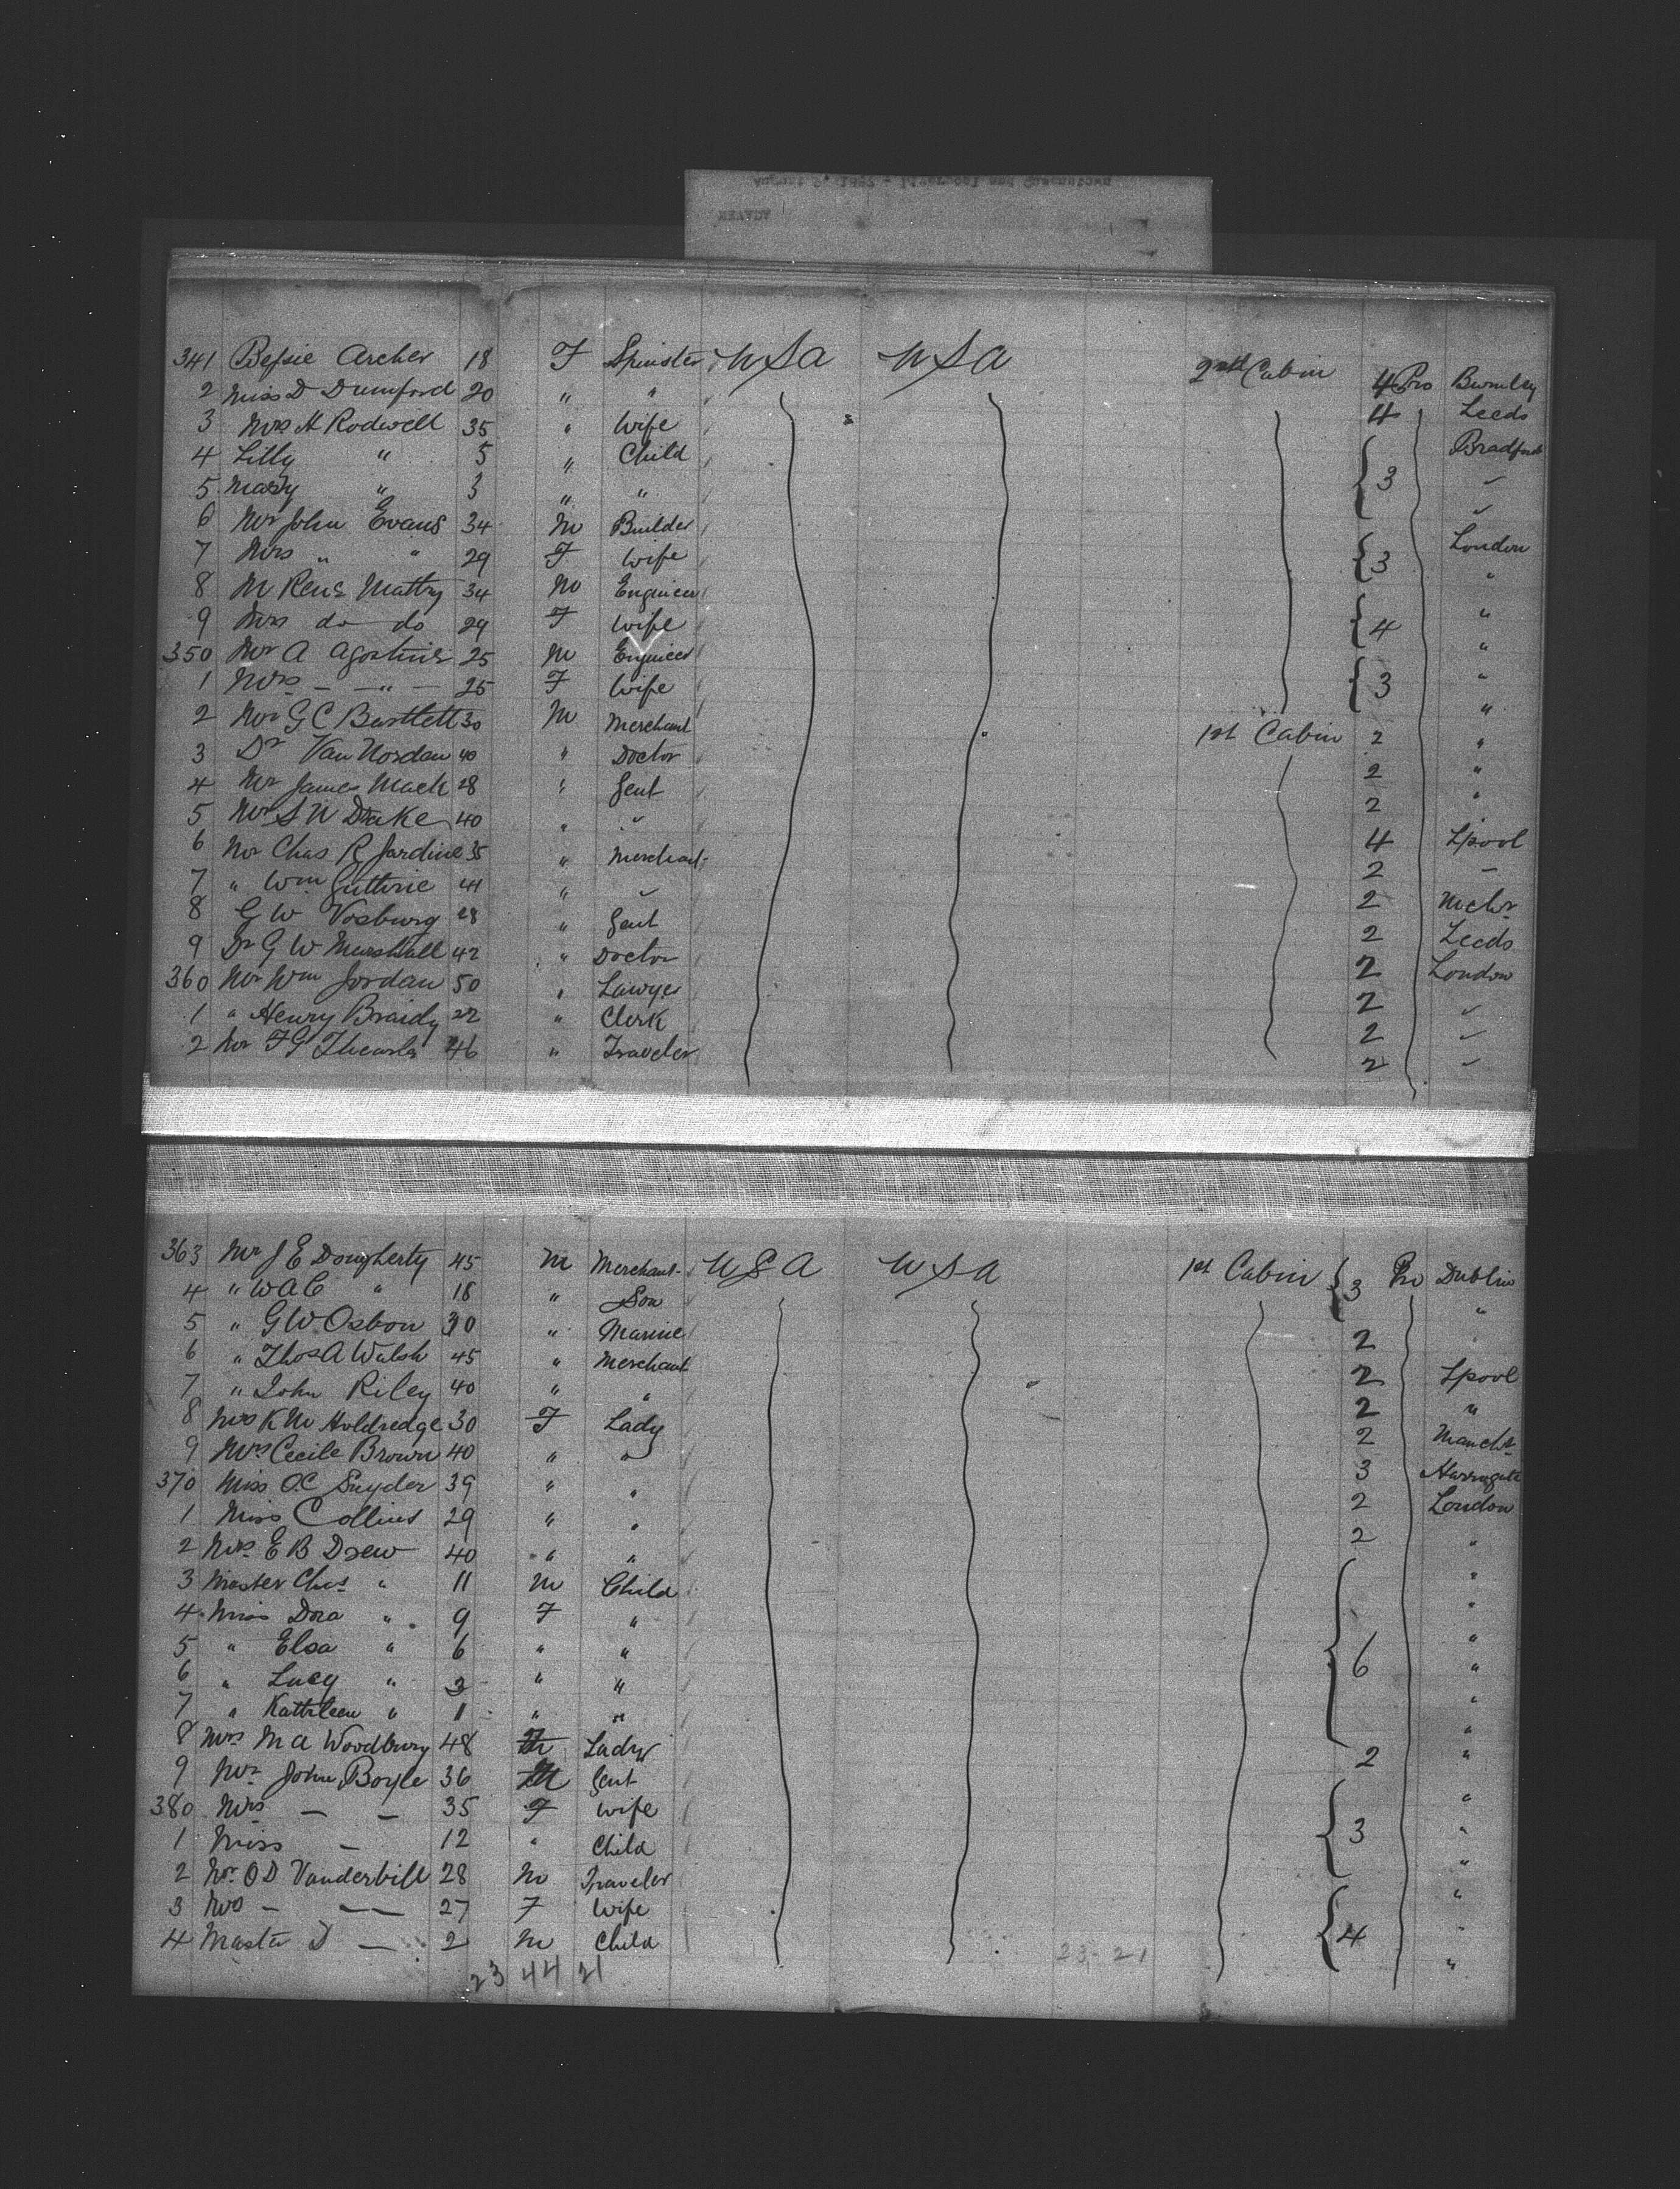 341 Bessie Archer 18 F Spinster U S A U S A 2nd Cabin 4 Pro Burnley
2 Miss D Dumford 20 " " 4 Leeds
3 Mrs H Rodwell 35 " Wife Bradford
4 Lilly " 5 " Child 3 "
5 Mary " 3 " " "
6 Mr John Evans 34 M Builder London
7 Mrs " " 29 F Wife 3 "
8 M Rene Mattry 34 M Engineer "
9 Mrs do do 29 F Wife 4 "
350 Mr A 25 M Engineer "
1 Mrs — " — 25 F Wife 3 "
2 Mr G C Bartlett 30 M Merchant 1st Cabin 2 "
3 Dr Van Nordan 40 " Doctor 2 "
4 Mr James Mack 28 " Gent 2 "
5 Mr S N Drake 40 " " 4 Lpool
6 Mr Chas R Jardine 35 " Merchant 2 "
7 " Wm Guthrie 44 " " 2 Mchr
8 G W Vosburg 28 " Gent 2 Leeds
9 Dr G W Marshall 42 " Doctor 2 London
360 Mr Wm Jordan 50 " Lawyer 2 "
1 " Henry Braidy 22 " Clerk 2 "
2 Mr F G 46 " Traveler 2 "
363 Mr J E Dougherty 45 M Merchant U S A U S A 1st Cabin 3 Pro Dublin
4 " W A C " 18 " Son "
5 " G W Osbon 30 " Marine 2 "
6 " Thos A Walsh 45 " Merchant 2 Lpool
7 " John Riley 40 " " 2 "
8 Mrs K M Holdredge 30 F Lady 2 Manchr
9 Mrs Cecile Brown 40 " " 3 Harrogate
370 Miss O.C Snyder 39 " " 2 London
1 Miss Collins 29 " " 2 "
2 Mrs E B Drew 40 " " "
3 Master Chas " 11 M Child "
4 Miss Dora " 9 F " "
5 " Elsa " 6 " " 6 "
6 " Lucy " 3 " " "
7 " Kathleen " 1 " " "
8 Mrs M A Woodbury 48 F Lady 2 "
9 Mr John Boyle 36 M Gent "
380 Mrs — — 35 F Wife 3 "
1 Miss — 12 " Child "
2 Mr O D Vanderbilt 28 M Traveler "
3 Mrs — — 27 F Wife 4 "
4 Master D — 2 M Child "
23 44 21 23 - 21